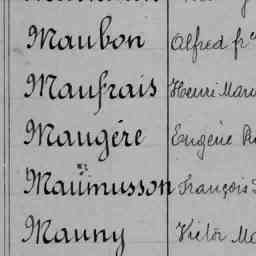 Maubon Alfred fr
Maufrais Henri Mari
Maugére Eugène
Maumusson François
Mauny Victor Ma